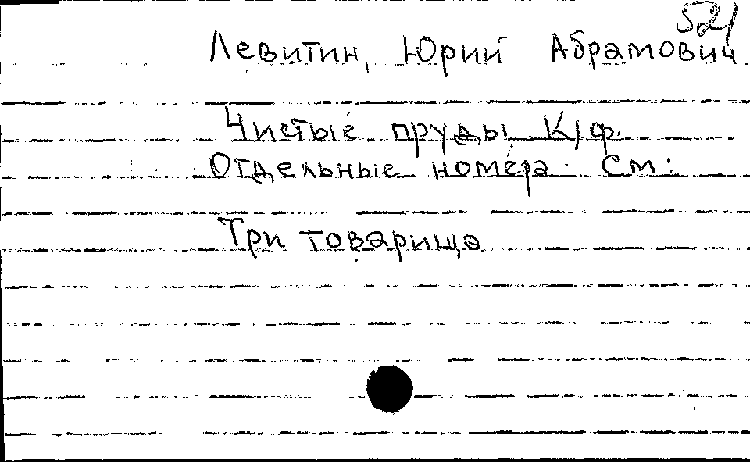 521
Левитин, Юрий Абрамович
Чистые пруды К/ф.
Отдельные номера см:
Три товарища